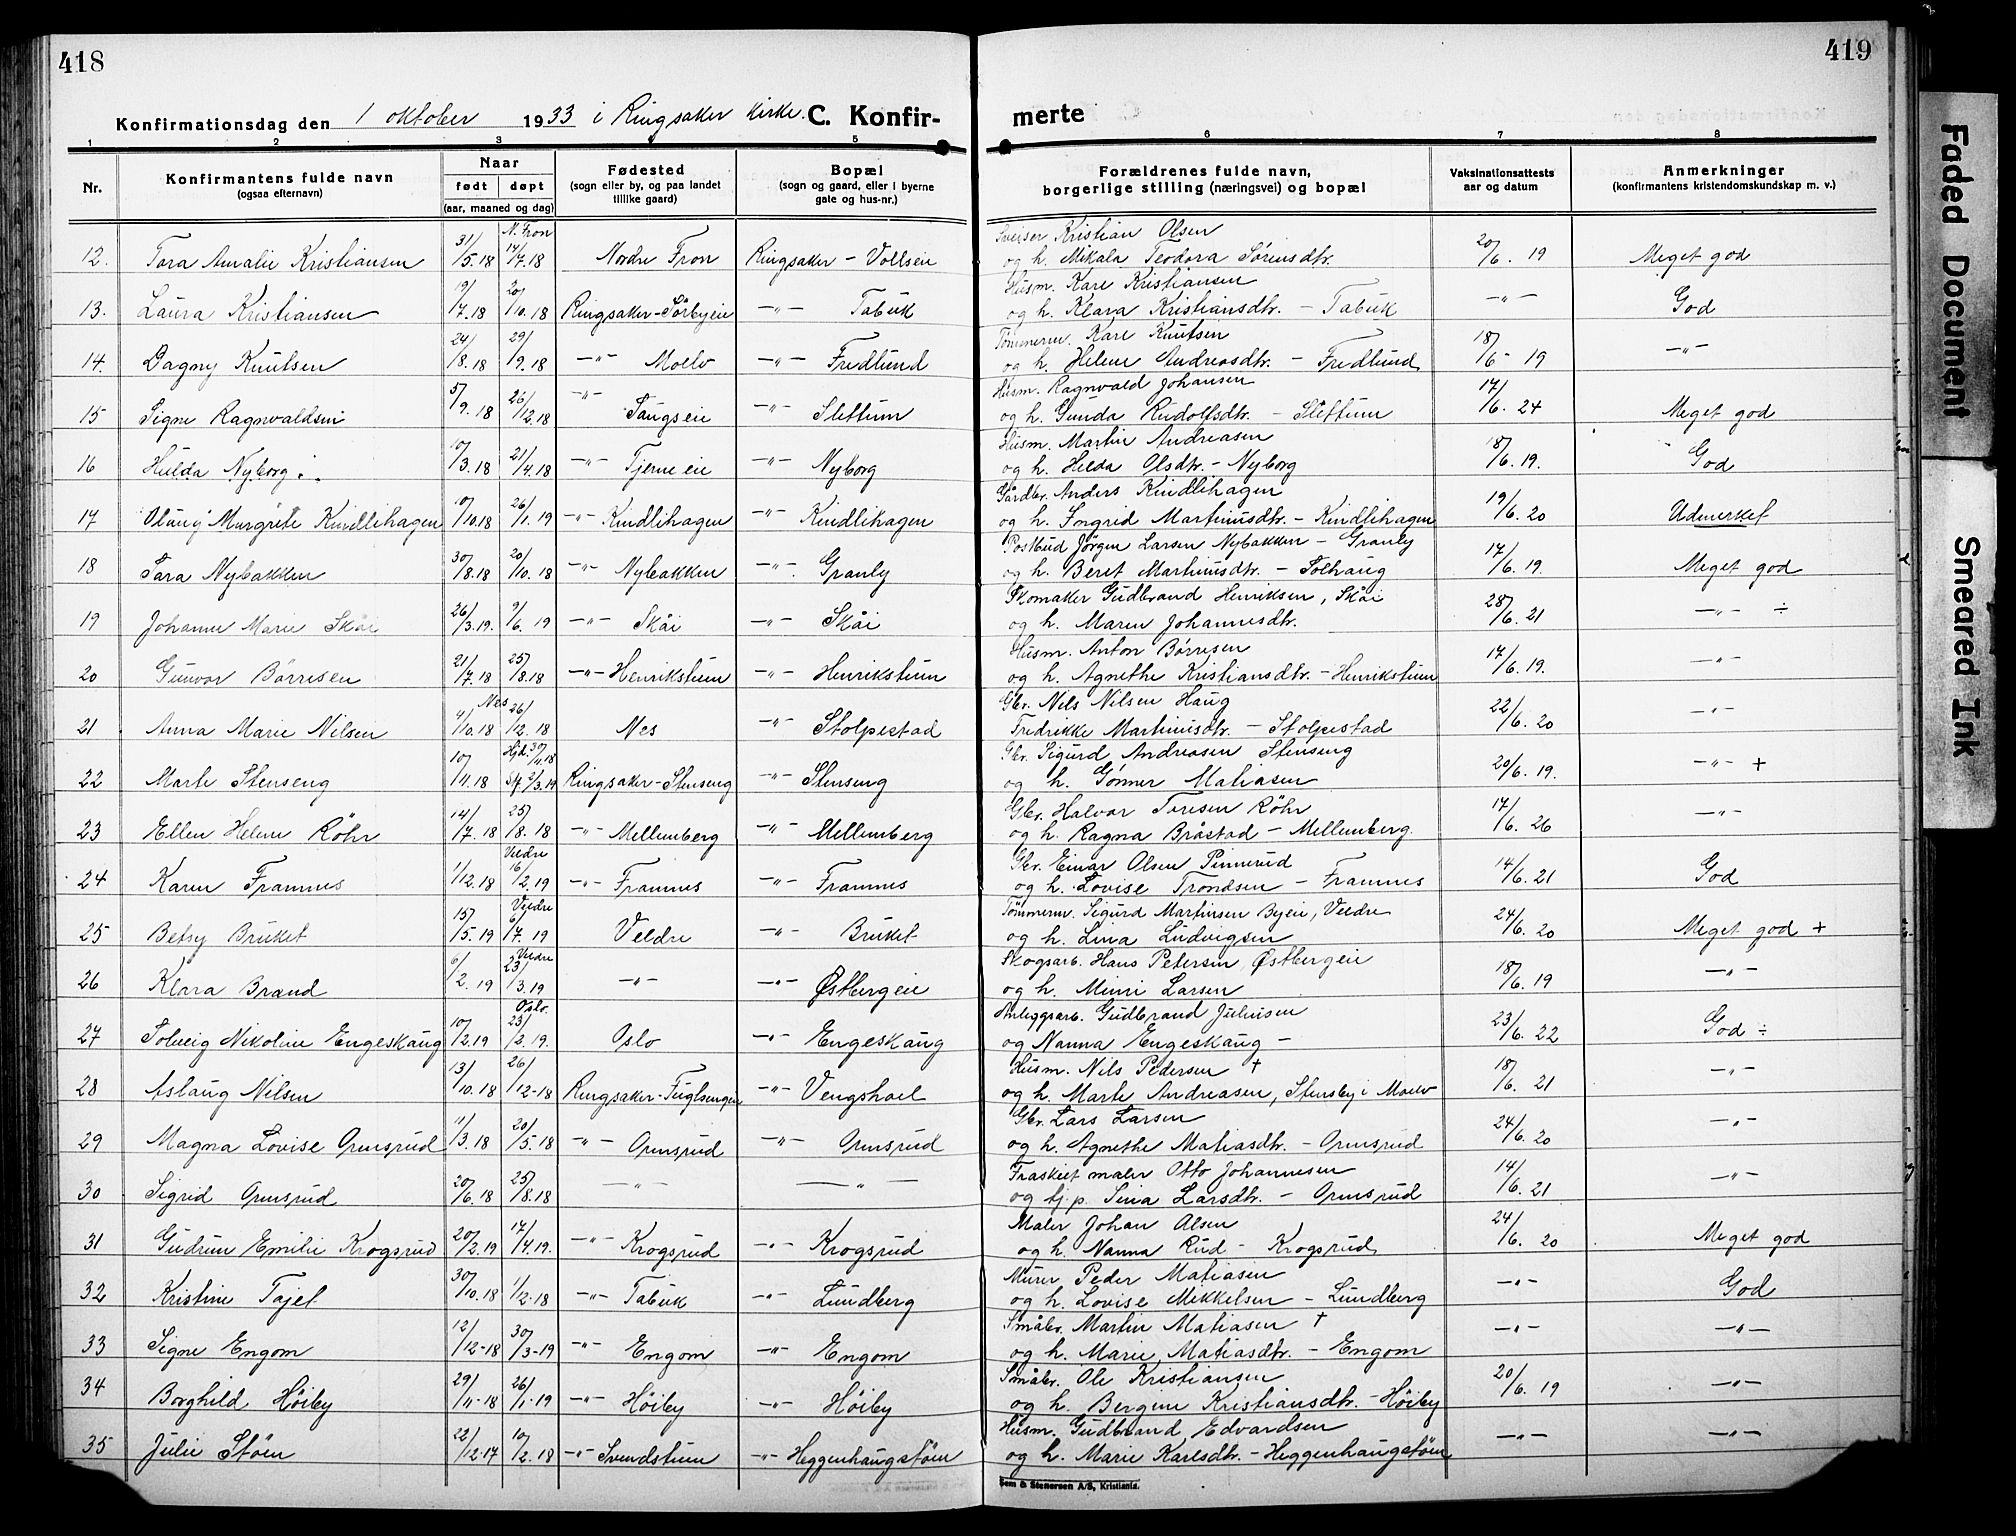 418
Konfirmationsdag den 1 oktober 1933 i Ringsaker kirke. C. Konfir-
1 2 3 4 5
Nr.
Konfirmantens fulde navn
(ogsaa efternavn)
Naar
født døpt
(aar, maaned og dag)
Fødested
(sogn eller by, og paa landet
tillike gaard)
Bopæl
(sogn og gaard, eller i byerne
gate og hus-nr.)
12. Tora Amalie Kristiansen 31/5.18 N. Fron 14/7.18 Nordre Fron Ringsaker - Vollseie
13. Laura Kristiansen 19/7.18 20/10.18 Ringsaker-Sörbyeie -"- Tabuk
14. Dagny Knutsen 24/8.18 29/9.18 -"- Moelv -"- Fredlund
15 Signe Ragnvaldsen 5/9.18 26/12.18 -"- Saugseie -"- Slettum
16 Hulda Nyborg 10/3.18 21/4.18 -"- Tjerneeie -"- Nyborg
17 Olaug Margrete Kindlihagen 10/10.18 26/1.19 -"- Kindlihagen -"- Kindlihagen
18 Sara Nybakken 30/8.18 20/10.18 -"- Nybakken -"- Granly
19 Johanne Marie Skåi 26/3.19. 9/6.19 -"- Skåi -"- Skåi
20 Gunvor Börresen 21/7.18 25/8.18 -"- Henrikstuen -"- Henrikstuen
21 Anna Marie Nilsen 4/10.18 Nes 26/12.18 Nes -"- Stolpestad
22 Marte Stenseng 10/11.18 Hjd. 30/11.18 St. 2/3.19 Ringsaker-Stenseng -"- Stenseng
23 Ellen Helene Röhr 14/7.18 25/8.18 -"- Mellemberg -"- Mellemberg
24 Karen Framnes 1/12.18 Veldre 16/2.19 -"- Framnes -"- Framnes
25 Betsy Bruket 15/5.19 Veldre 6/7.19 Veldre -"- Bruket
26 Klara Brænd 6/2.19 Veldre 23/3.19 -"- -"- Østbergeie
27 Solveig Nikoline Engeskaug 10/2.19 Oslo. 23/2.19. Oslo -"- Engeskaug
28 Aslaug Nilsen 13/10.18 26/12-18 Ringsaker-Fuglsengen -"- Vengshoel
29 Magna Lovise Ormsrud 11/3.18 20/5.18 -"- Ormsrud -"- Ormsrud
30 Sigrid Ormsrud 20/6.18 25/8.18 -"- -"-
31 Gudrun Emilie Krogsrud 20/2.19 17/4.19. -"- Krogsrud -"- Krogsrud
32 Kristine Tajet 30/10.18 1/12.18 -"- Tabuk -"- Lundberg
33 Signe Engom 12/12-18 30/3-19 -"- Engom -"- Engom
34 Borghild Höiby 29/11-18 26/1-19 -"- Höiby -"- Höiby
35 Julie Stöen 22/12-17 10/2.18 -"- Svendstuen -"- Heggenhaugstöen
419
merte
6 7 8
Forældrenes fulde navn,
borgerlige stilling (næringsvei) og bopæl
Vaksinationsattests
aar og datum
Anmerkninger
(konfirmantens kristendomskundskap m. v.)
Sveiser Kristian Olsen
og h. Mikala Teodora Sörensdtr. 20/6.19 Meget god
Husm. Kare Kristiansen
og h. Klara Kristiansdtr. - Tabuk -"- God
Tömmerm. Kare Knutsen
og h. Helene Andreasdtr. - Fredlund 18/6-19 -"-
Husm. Ragnvald Johansen
og h. Gunda Rudolfsdtr. - Slettum 17/6.24 Meget god
Husm. Martin Andreasen
og h. Helda Olsdtr. - Nyborg 18/6.19. God
Gårdbr. Anders Kindlihagen
og h. Ingrid Martinusdtr. - Kindlihagen 19/6.20 Udmerket
Postbud Jörgen Larsen Nybakken - Granly
og h. Beret Martinusdtr. - Solhaug 17/6.19. Meget god
Skomaker Gudbrand Henriksen, Skåi
og h. Maren Johannesdtr. 28/6.21 -"- ÷
Husm. Anton Börresen
og h. Agnethe Kristiansdtr. - Henrikstuen 17/6.19. -"-
Gbr. Nils Nilsen Haug
Fredrikke Martinusdtr. - Stolpestad 22/6.20 -"-
Gbr. Sigurd Andreasen Stenseng
og h. Gönner Matiasen 20/6.19. -"- +
Gbr. Halvor Toresen Röhr
og h. Ragna Bråstad - Mellemberg. 17/6.26 -"-
Gbr. Einar Olsen Pinnerud
og h. Lovise Trondsen - Framnes 14/6.21 God
Tömmerm. Sigurd Martinsen Byeie, Veldre
og h. Lina Ludvigsen 24/6.20 Meget god +
Skogsarb. Hans Petersen Østbergeie
og h. Minni Larsen 18/6.19 -"-
Anleggsarb. Gudbrand Juliusen
og Nanna Engeskaug - 23/6.22 God ÷
Husm. Nils Pedersen +
og h. Marte Andreasen, Stensby i Moelv 18/6.21 -"-
Gbr. Lars Larsen
og h. Agnethe Matiasdtr. - Ormsrud 24/6.20 -"-
Fraskilt maler Otto Johannesen
og tj.p. Sina Larsdtr. - Ormsrud 14/6.21 -"-
Maler Johan Olsen
og h. Nanna Rud - Krogsrud 24/6.20 Meget god
Murer Peder Matiasen
og h. Lovise Mikkelsen - Lundberg -"- God
Småbr. Martin Matiasen +
og h. Marie Matiasdtr. - Engom -"- -"-
Småbr. Ole Kristiansen
og h. Bergine Kristiansdtr. - Höiby 20/6.19 -"-
Husm. Gudbrand Edvardsen
og h. Marie Karlsdtr. - Heggenhaugstöen -"- -"-
Sem & Stenersen A/S, Kristiania.
Faded Document
Smeared Ink